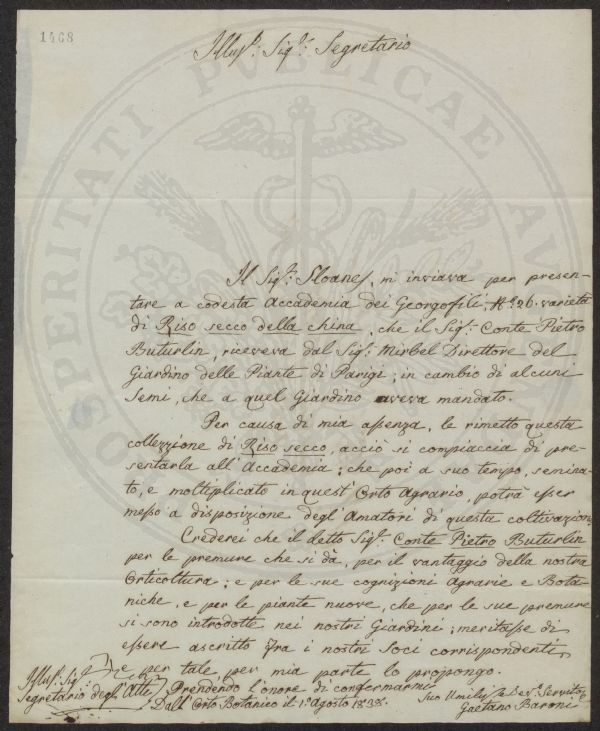 1468
Illus.º Sig.º Segretario
Il Sig.º Sloane, mi inviava per presen-
tare a codesta Accademia dei Georgofili; N.º 26. varietà
di Riso secco della China, che il Sig.º Conte Pietro
Buturlin, riceveva dal Sig.º Mirbel Direttore del
Giardino delle Piante di Parigi; in cambio di alcuni
semi, che a quel Giardino aveva mandato.
Per causa di mia assenza, le rimetto questa
collezzione di Riso secco, acciò si compiaccia di pre-
sentarla all'Accademia; che poi a suo tempo, semina-
to, e moltiplicato in quest'Orto Agrario, potrà esser
messo a disposizione degl'Amatori di questa coltivazione.
Crederei che il detto Sig.º Conte Pietro Buturlin
per le premure che si dà, per il vantaggio della nostra
Orticoltura; e per le sue cognizioni Agrarie e Bota-
niche, e per le piante nuove, che per le sue premure
si sono introdotte nei nostri Giardini; meritasse di
essere ascritto fra i nostri Soci corrispondenti,
e per tale per mia parte lo propongo.
Prendendo l'onore di confermarmi
Dall'Orto Botanico il 1.º Agosto 1838.
Illus. Sig.
Segretario degl'Atti
Suo Umilis. Dev.º Servitore
Gaetano Baroni
PROSPERITATI PUBLICAE AU